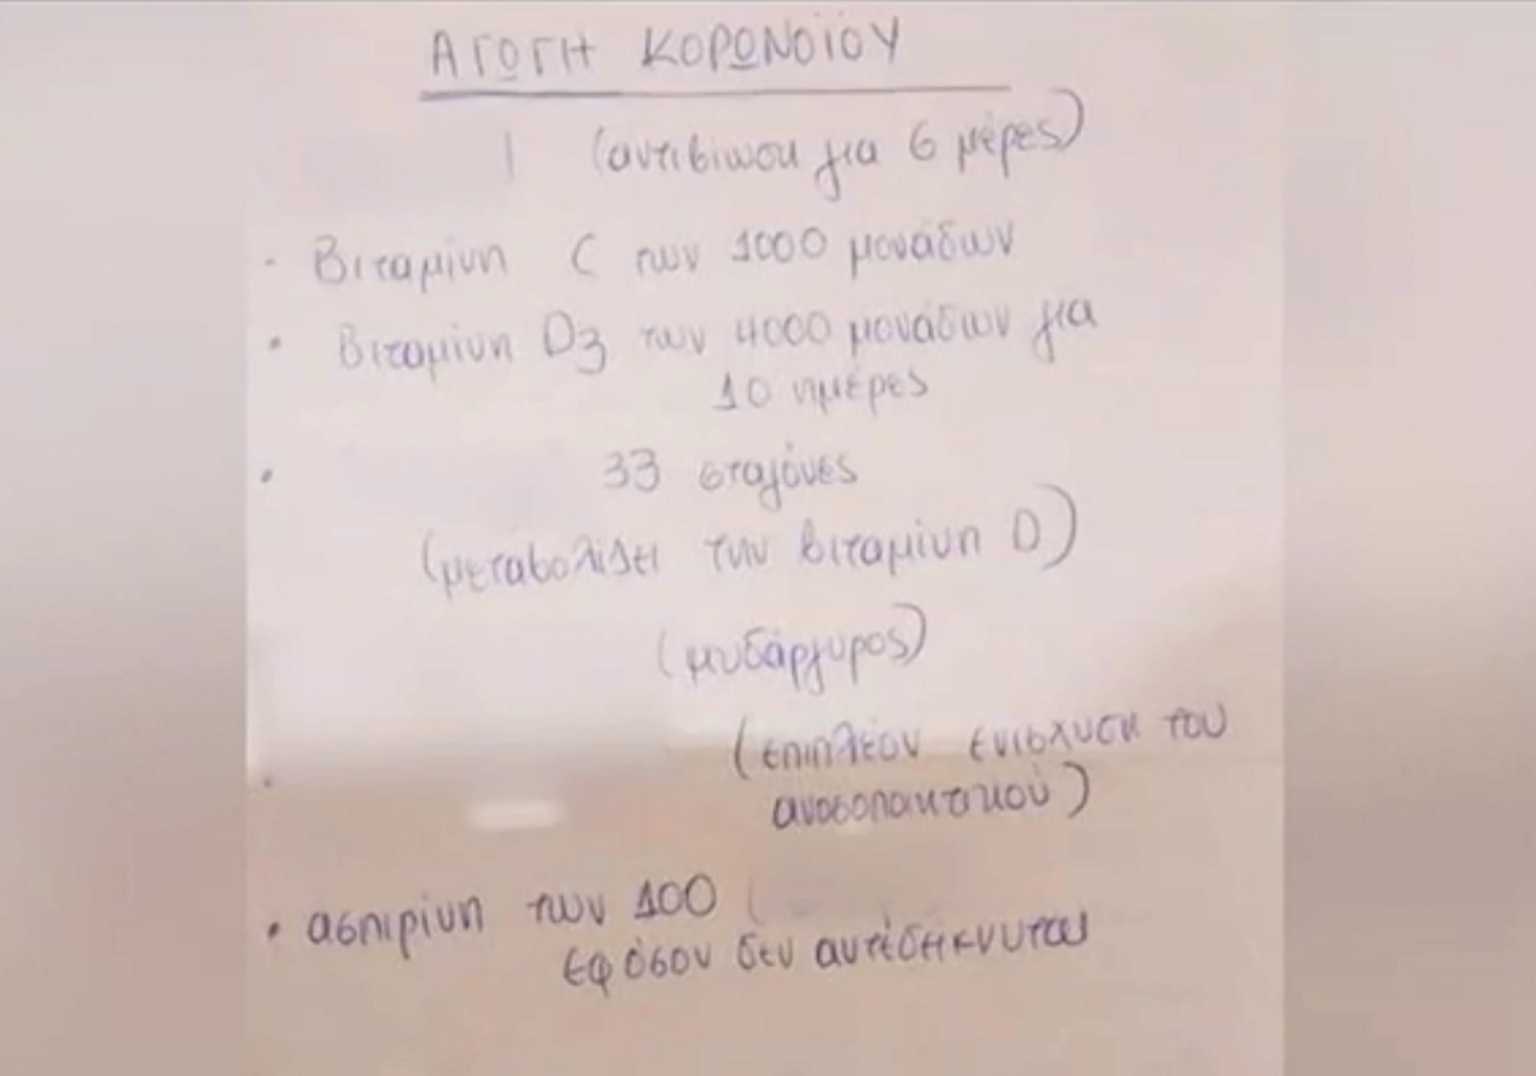 ΑΓΩΓΗ ΚΟΡΩΝΟΪΟΥ
(αντιβίωση για 6 μέρες)
· Βιταμίνη C των 1000 μονάδων
· Βιταμίνη D3 των 4000 μονάδων για
10 ημέρες
· 33 σταγόνες
(μεταβολίζει την βιταμίνη D)
(μυδάργυρος)
(επιπλέον ενίσχυση του
ανοσοποιητικού)
· ασπιρίνη των 100 (
εφόσον δεν αντέδηκνυται